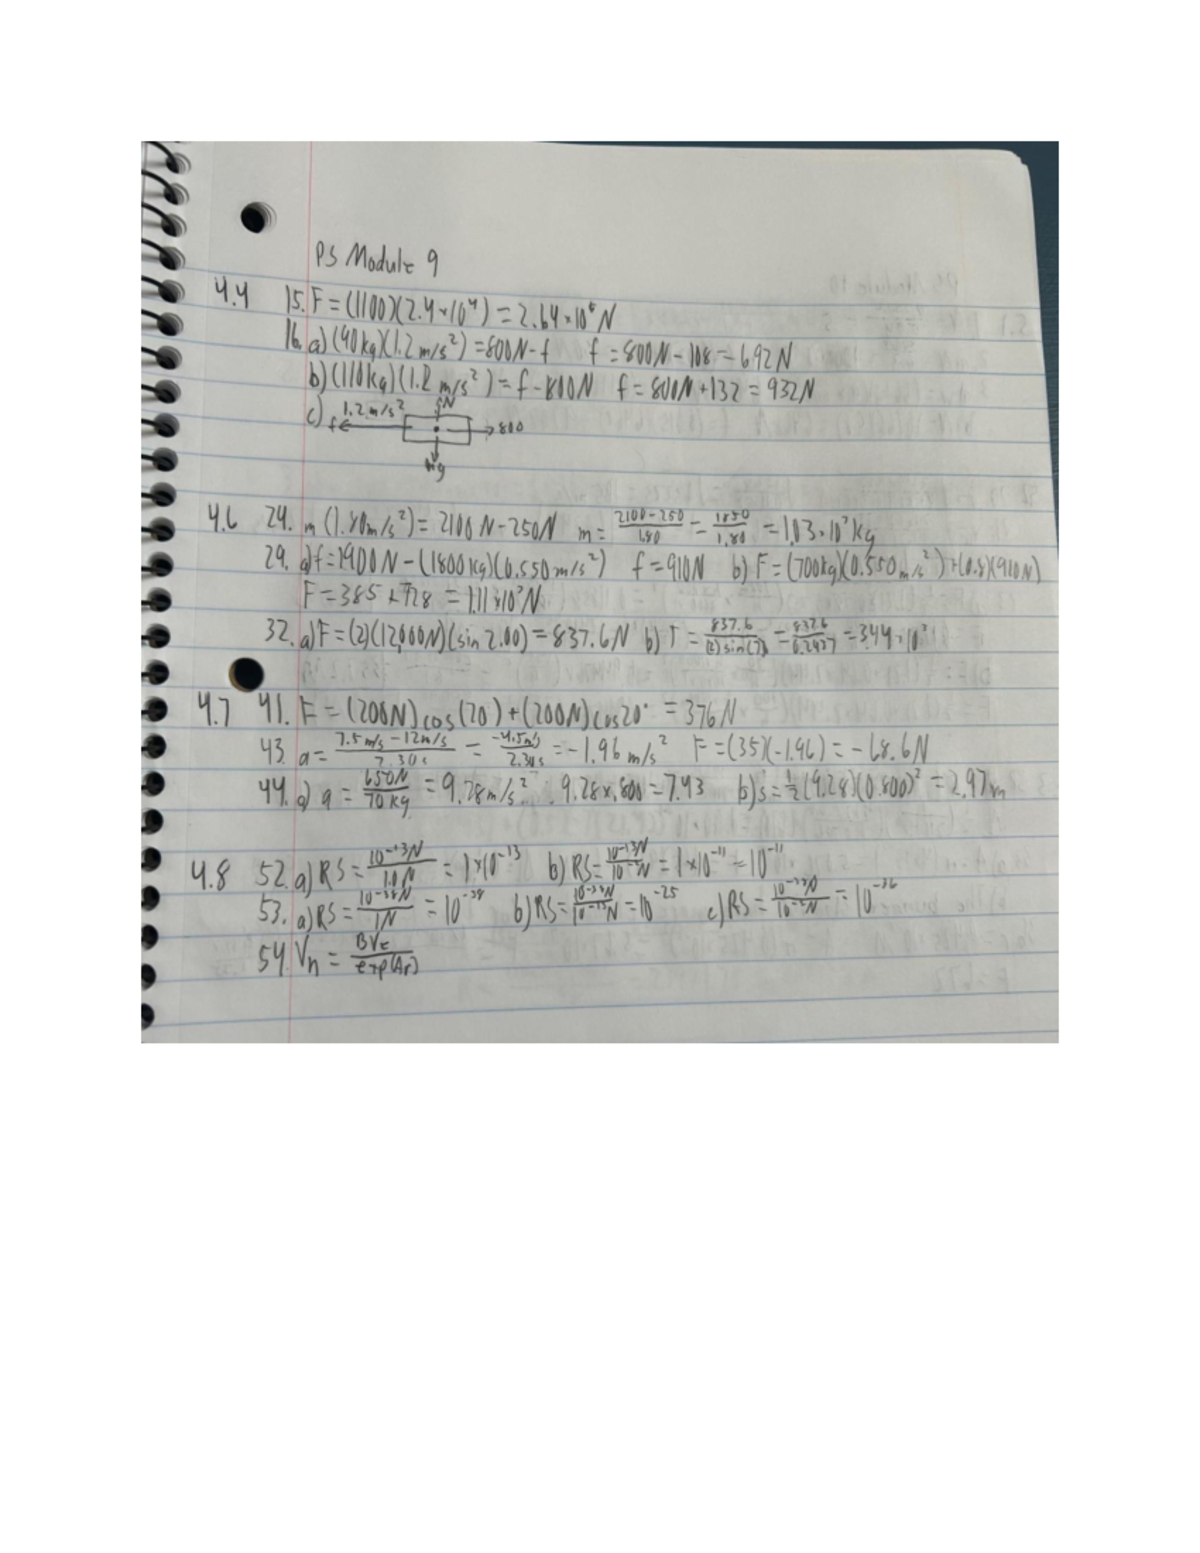 PS Module 9
4.4 15. F = (1100)(2.4×10⁴) = 2.64×10⁶ N
16. a) (90kg)(1.2 m/s²) = 800N - f f = 800N - 108 = 692N
b) (110kg)(1.2 m/s²) = f - 800N f = 800N + 132 = 932N
c) f 1.2 m/s² N 800
mg
4.6 24. m (1.80m/s²) = 2100 N - 250N m = 2100-250/1.80 = 1850/1.80 = 1.03×10³ kg
29. a) f = 1900N - (1800kg)(0.550 m/s²) f = 910N b) F = (700kg)(0.550m/s²) + (0.8)(910N)
F = 385 + 728 = 1.11×10³N
32. a) F = (2)(12,000N)(sin 2.00) = 837.6N b) T = 837.6/(2)sin(7) = 837.6/0.2437 = 3.44×10³
4.7 41. F = (200N)cos(20) + (200N)cos20° = 376N
43. a = 7.5 m/s - 12m/s/2.30s = -4.5m/s/2.30s = -1.96 m/s² F = (35)(-1.96) = -68.6N
44. a) a = 650N/70kg = 9.28m/s² 9.28×.800 = 7.43 b) s = 1/2(9.28)(0.800)² = 2.97m
4.8 52. a) RS = 10⁻¹³N/1.0N = 1×10⁻¹³ b) RS = 10⁻¹³N/10⁻²N = 1×10⁻¹¹ = 10⁻¹¹
53. a) RS = 10⁻³⁸N/1N = 10⁻³⁸ b) RS = 10⁻³⁸N/10⁻¹³N = 10⁻²⁵ c) RS = 10⁻³⁸N/10⁻²N = 10⁻³⁶
54. Vn = BVe/exp(Ar)